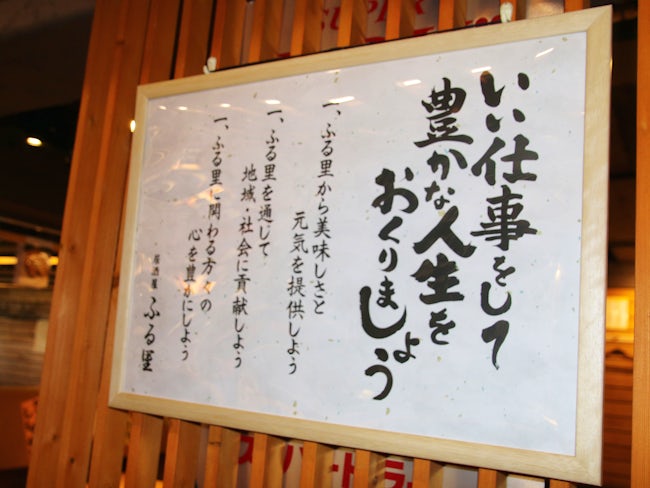 いい仕事をして
豊かな人生を
おくりましょう
一、ふる里から美味しさと
元気を提供しよう
一、ふる里を通じて
地域・社会に貢献しよう
一、ふる里に関わる方々の
心を豊かにしよう
居酒屋 ふる里